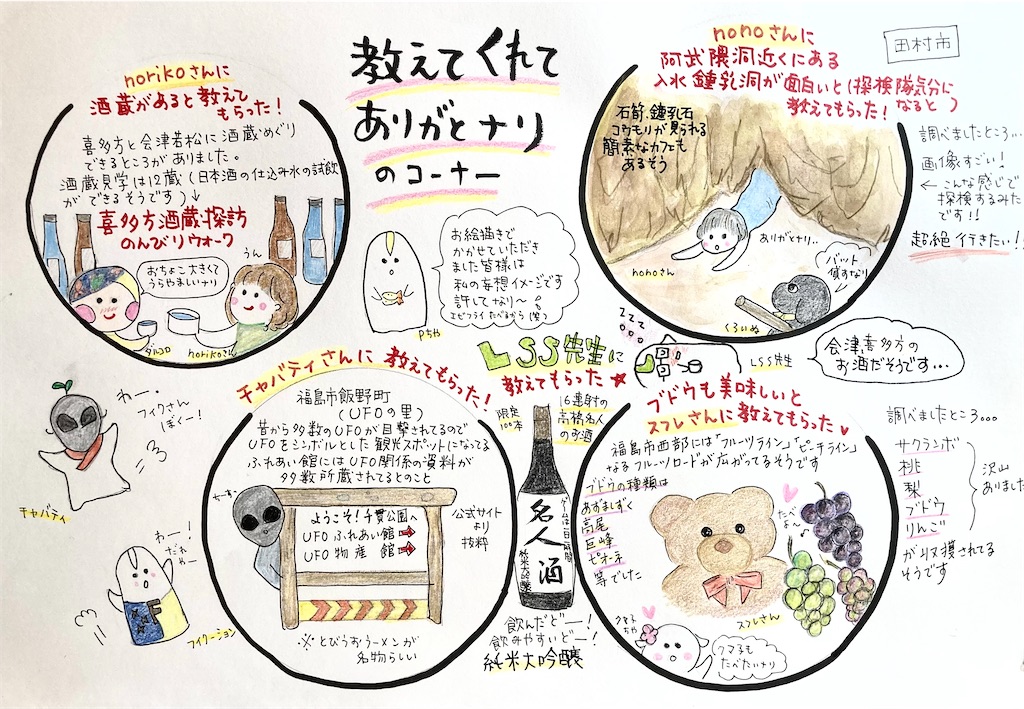 教えてくれて
ありがとナリ
のコーナー
norikoさんに
酒蔵があると教えて
もらった！
喜多方と会津若松に酒蔵めぐり
できるところがありました。
酒蔵見学は12蔵（日本酒の仕込み水の試飲
ができるそうです）↓
喜多方酒蔵探訪
のんびりウォーク
おちょこ大きくて
うらやましいナリ
うん
ダルコロ
norikoさん
Pちゃ
お絵描きで
かかせていただき
ました皆様は
私の妄想イメージです
許してなり〜
エビフライたべるから(笑)
nonoさんに
阿武隈洞近くにある
入水鍾乳洞が面白いと(探検隊気分に
なると)
教えてもらった！
田村市
石筍、鍾乳石
コウモリが見られる
簡素なカフェも
あるそう
ありがとナリ..
nonoさん
バット
貸すなり
くろいぬ
調べましたところ…
画像すごい！
← こんな感じで
探検するみたい
です!!
超絶行きたい！
ZZZ
LSS先生
会津、喜多方の
お酒だそうです…
LSS先生に
教えてもらった★
限定
100本
16連射の
高橋名人
のお酒
ゲームは一日一時間
名人酒
純米大吟醸
飲んだどー！
飲みやすいどー！
純米大吟醸
チャパティさんに教えてもらった！
福島市飯野町
（UFOの里）
昔から多数のUFOが目撃されてるので
UFOをシンボルとした観光スポットになってる
ふれあい館にはUFO関係の資料が
多数所蔵されてるとのこと
ようこそ！千貫公園へ
UFOふれあい館➡
UFO物産館➡
公式サイト
より
抜粋
※とびうおラーメンが
名物らしい
わー.
フィクさん
ぼくー！
チャパティ
わー！
だれ
わー
F
フィクーション
ブドウも美味しいと
スフレさんに教えてもらった♥
福島市西部には「フルーツライン」「ピーチライン」
なるフルーツロードが広がってるそうです
ブドウの種類は
あずましずく
高尾
巨峰
ピオーネ
等でした
たべ
よ〜♪
スフレさん
クマ子も
たべたいナリ
調べましたところ。。。
サクランボ
桃
梨
ブドウ
りんご
沢山
ありました
が収穫されてる
そうです